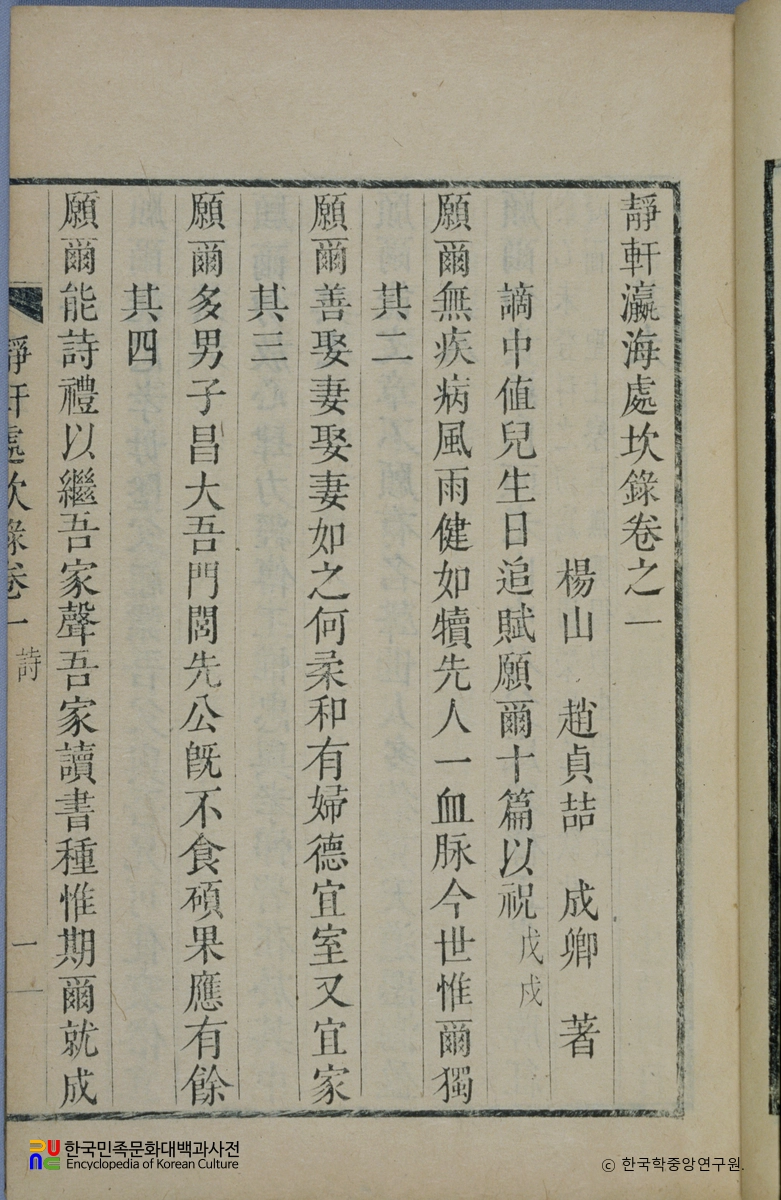 靜軒瀛海處坎錄卷之一
楊山 趙貞喆 成卿 著
謫中値兒生日追賦願爾十篇以祝戊戌
願爾無疾病風雨健如犢先人一血脉今世惟爾獨
其二
願爾善娶妻娶妻如之何柔和有婦德宜室又宜家
其三
願爾多男子昌大吾門閭先公旣不食碩果應有餘
其四
願爾能詩禮以繼吾家聲吾家讀書種惟期爾就成
靜軒處坎錄卷一 詩 一
한국민족문화대백과사전
Encyclopedia of Korean Culture
© 한국학중앙연구원.